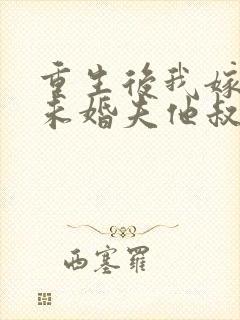 重生後我嫁
未婚夫他叔
西塞羅